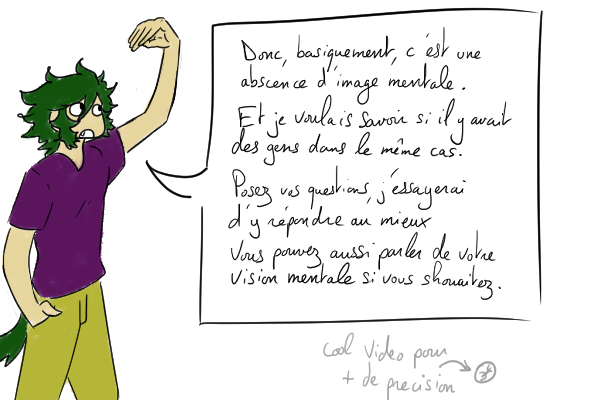 Donc, basiquement, c'est une
abscence d'image mentale.
Et je voulais savoir si il y avait
des gens dans le même cas.
Posez vos questions, j'éssayerai
d'y répondre au mieux
Vous pouvez aussi parler de votre
vision mentale si vous shouaitez.
cool video pour
+ de precision